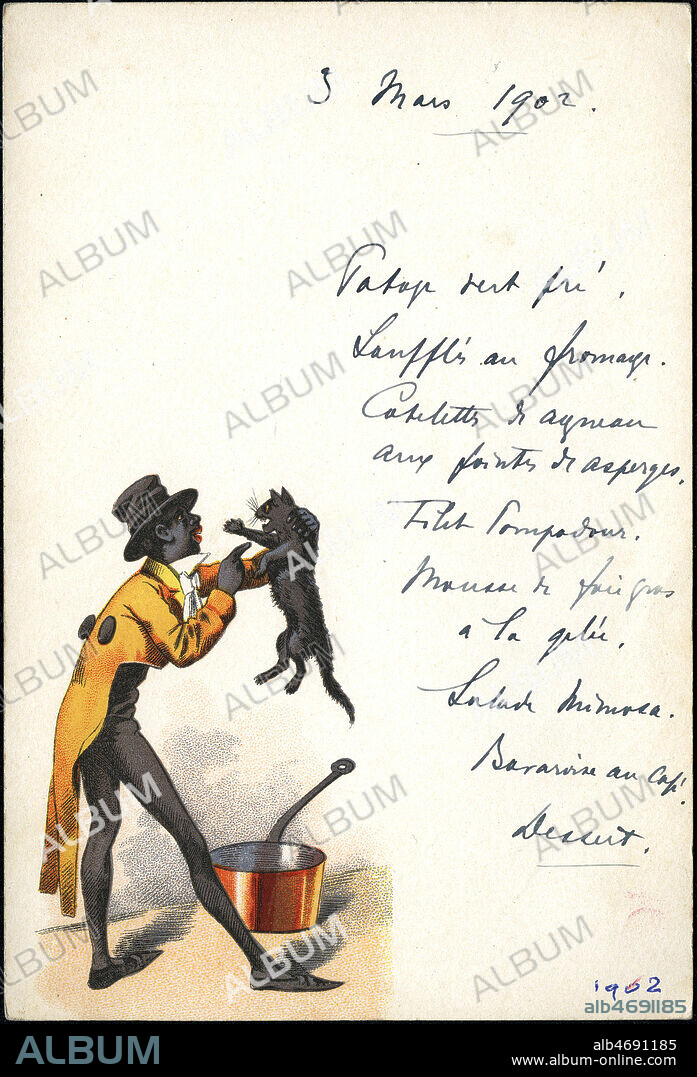 3 Mars 1902.
Potage vert pré.
Soufflés au fromage.
Cotelettes de agneau
aux pointes de asperges.
Filet Pompadour.
Mousse de foie gras
à la gelée.
Salade Mimosa.
Bavaroise au café.
Dessert.
1902
alb4691185
ALBUM
alb4691185
www.album-online.com